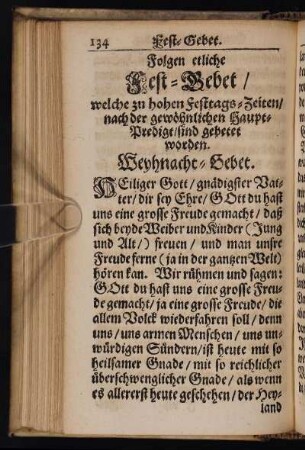 134 Fest-Gebet.
Folgen etliche
Fest-Gebet /
welche zu hohen Festtags-Zeiten/
nach der gewöhnlichen Haupt-
Predigt/sind gebetet
worden.
Weyhnacht-Gebet.
HEiliger Gott / gnädigster Vat-
ter/ dir sey Ehre/ GOtt du hast
uns eine grosse Freude gemacht / daß
sich beyde Weiber und Kinder (Jung
und Alt/) freuen / und man unsre
Freude ferne (ja in der gantzen Welt)
hören kan. Wir rühmen und sagen:
GOtt du hast uns eine grosse Freu-
de gemacht/ ja eine grosse Freude/ die
allem Volck wiederfahren soll / denn
uns / uns armen Menschen / uns un-
würdigen Sündern/ ist heute mit so
heilsamer Gnade/ mit so reichlicher
überschwenglicher Gnade/ als wenn
es allererst heute geschehen/ der Hey-
land